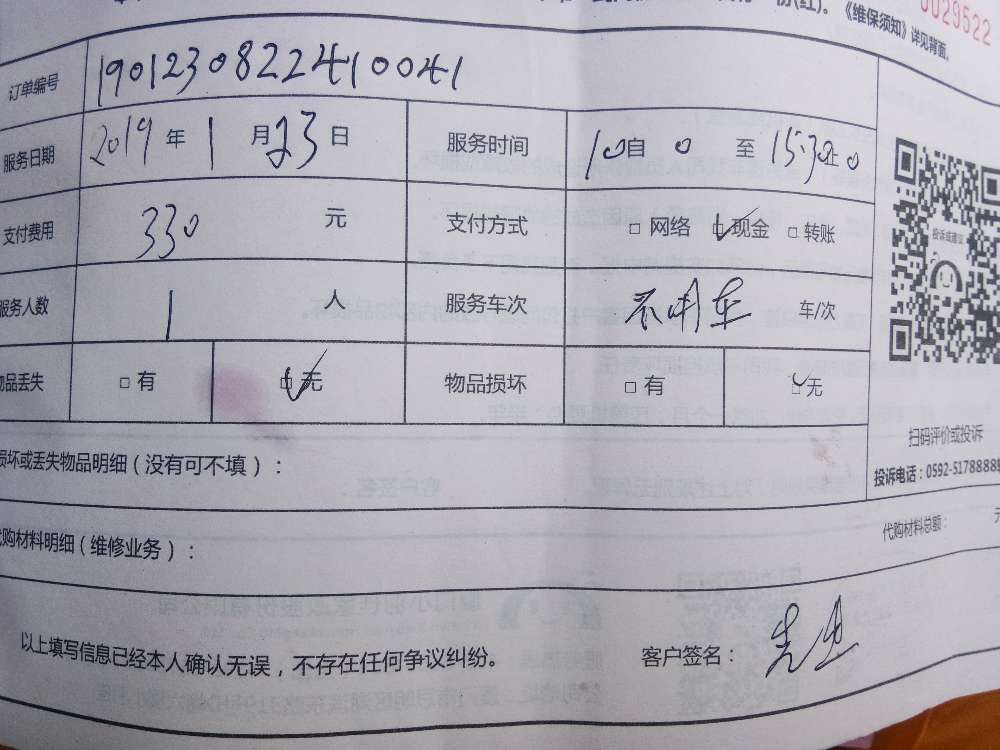 份(红)。《维保须知》详见背面。
0029522
订单编号 1901230822410041
服务日期 2019 年 1 月 23 日 服务时间 10 自 0 至 15:30 止
支付费用 330 元 支付方式 □ 网络 ☑ 现金 □ 转账
服务人数 1 人 服务车次 不用车 车/次
物品丢失 □ 有 ☑ 无 物品损坏 □ 有 ☑ 无
投诉或建议
扫码评价或投诉
投诉电话：0592-5178888
损坏或丢失物品明细（没有可不填）：
代购材料明细（维修业务）：
代购材料总额： 元
以上填写信息已经本人确认无误，不存在任何争议纠纷。 客户签名： 先生